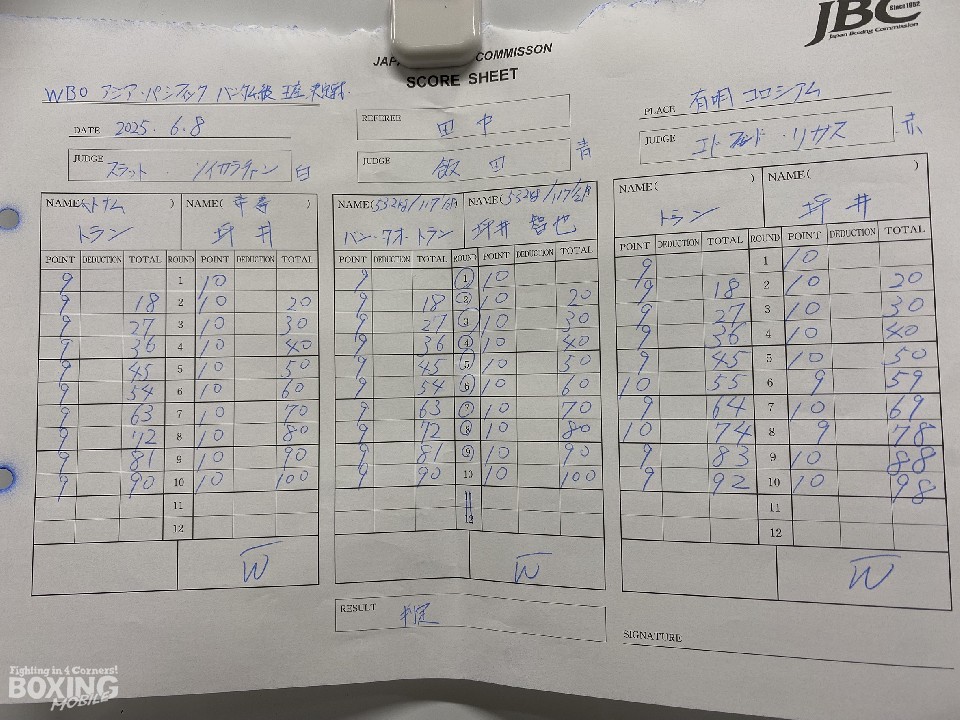 JBC
Since 1952
Japan Boxing Commission
COMMISSON
SCORE SHEET
WBO アジア・パシフィック バンタム級 王座決定戦
DATE 2025. 6. 8
REFEREE 田中
PLACE 有明コロシアム
JUDGE スラット・ソイカラチャン 白
JUDGE 飯田 青
JUDGE リカス 赤
NAME(ベトナム) トラン NAME( ) 坪井
NAME( ) バン・タオ・トラン NAME( ) 坪井 智也
NAME( ) トラン NAME( ) 坪井
POINT DEDUCTION TOTAL ROUND POINT DEDUCTION TOTAL
9 1 10
9 18 2 10 20
9 27 3 10 30
9 36 4 10 40
9 45 5 10 50
9 54 6 10 60
9 63 7 10 70
9 72 8 10 80
9 81 9 10 90
9 90 10 10 100
11
12
W
POINT DEDUCTION TOTAL ROUND POINT DEDUCTION TOTAL
9 1 10
9 18 2 10 20
9 27 3 10 30
9 36 4 10 40
9 45 5 10 50
9 54 6 10 60
9 63 7 10 70
9 72 8 10 80
9 81 9 10 90
9 90 10 10 100
11
12
W
POINT DEDUCTION TOTAL ROUND POINT DEDUCTION TOTAL
9 1 10
9 18 2 10 20
9 27 3 10 30
9 36 4 10 40
9 45 5 10 50
10 55 6 9 59
9 64 7 10 69
10 74 8 9 78
9 83 9 10 88
9 92 10 10 98
11
12
W
RESULT 判定
SIGNATURE
Fighting in 4 Corners!
BOXING
MOBILE